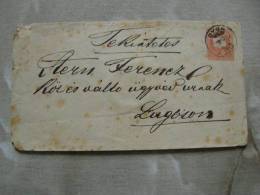 Tekintetes
Stern Ferencz
Köz és váltó ügyvéd urnak
Lugoson